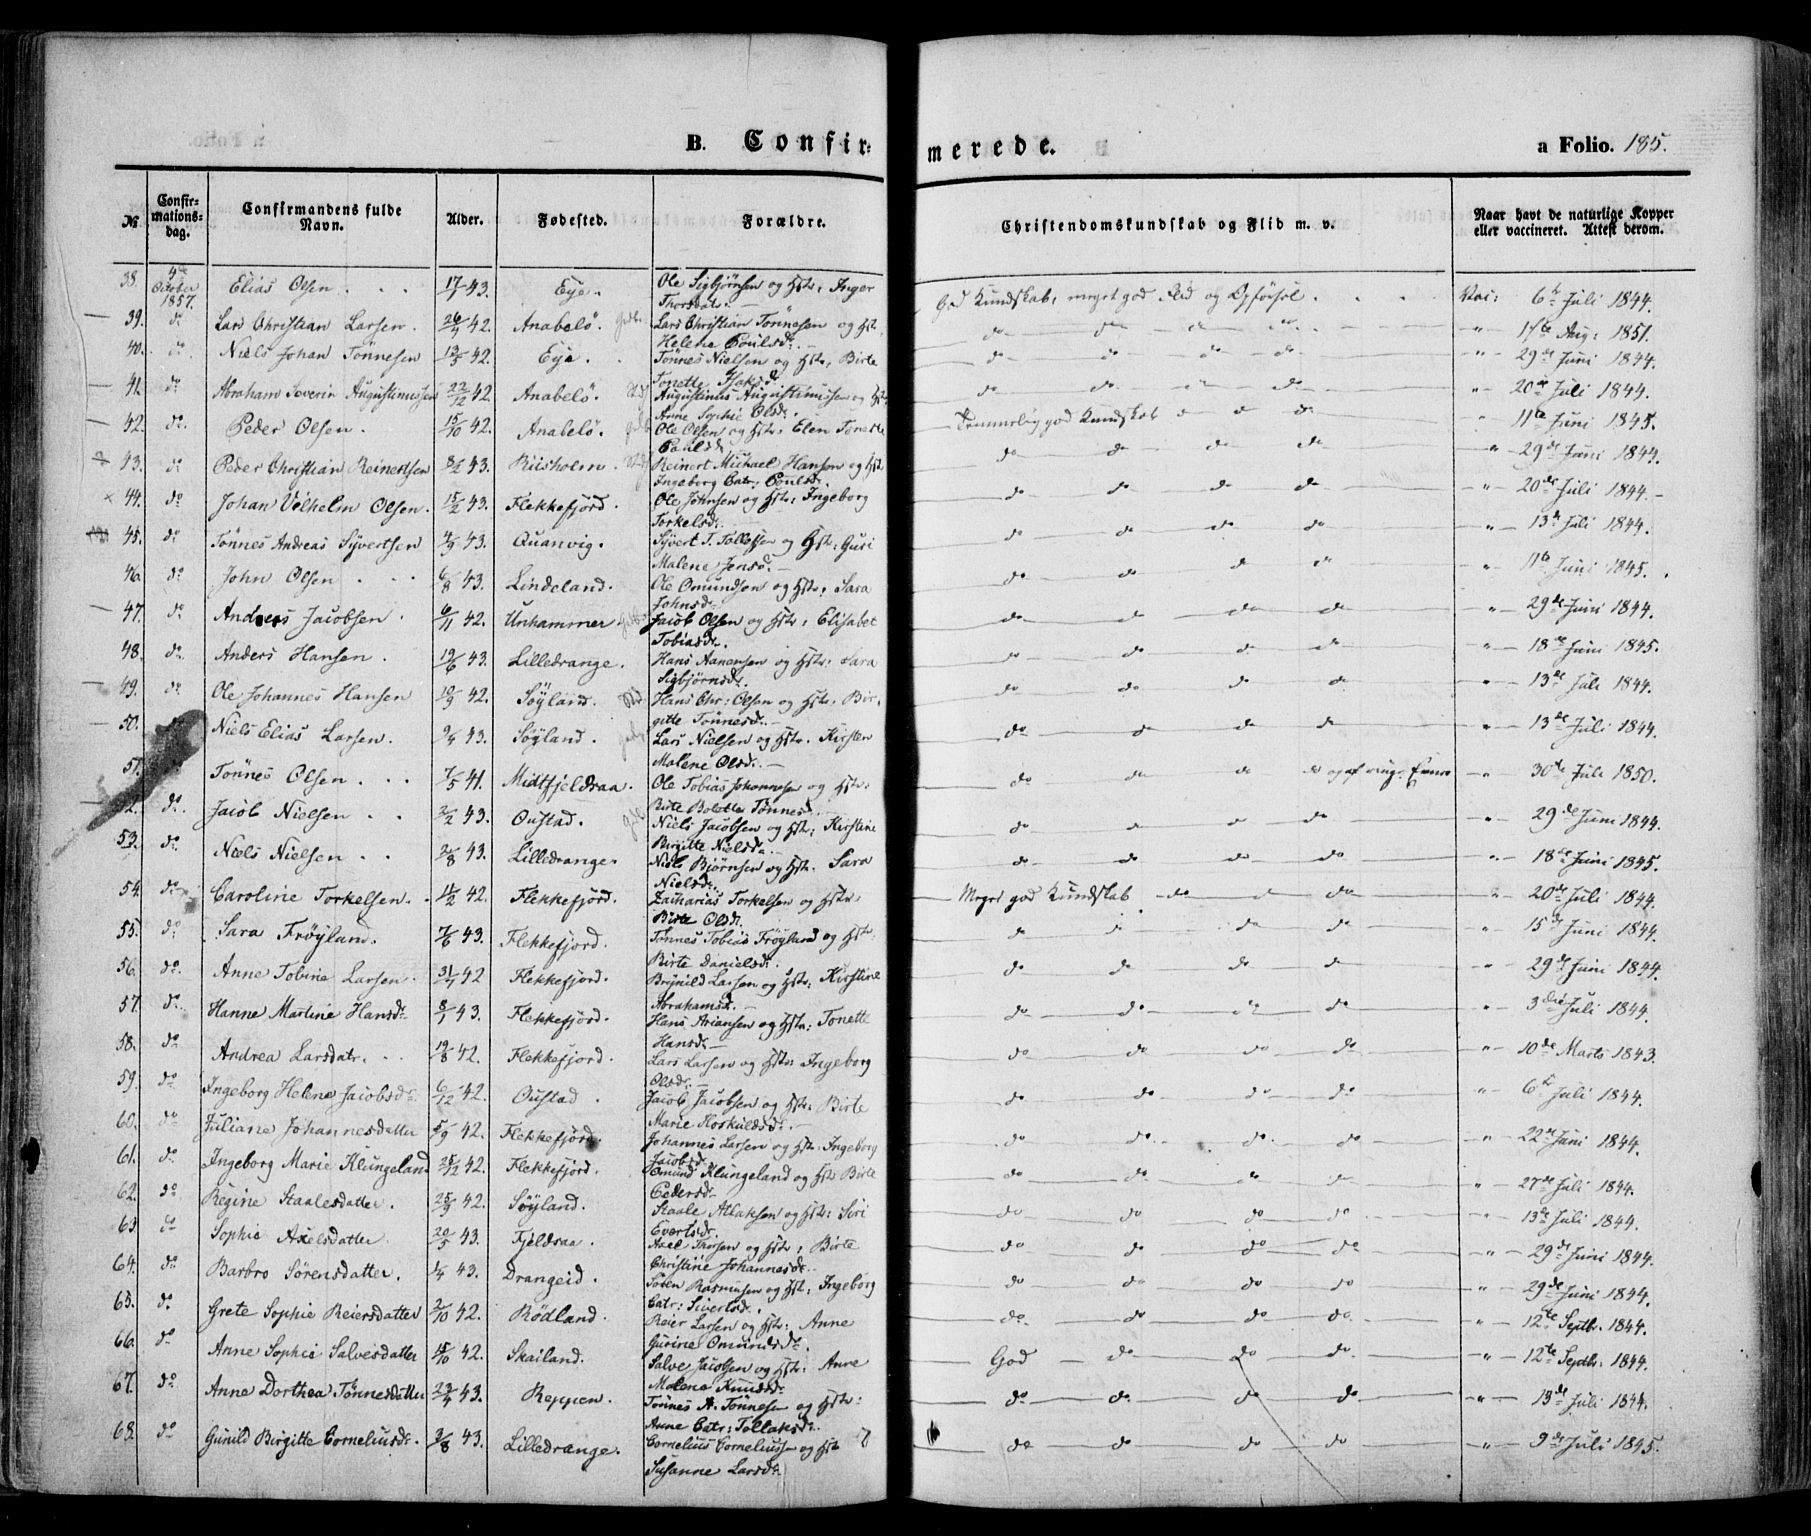 B. Confir=
merede.
a Folio. 185.
№
Confirmations-dag.
Confirmandens fulde Navn.
Alder.
Fødested.
Forældre.
Christendomskundskab og Flid m. v.
Naar havt de naturlige Kopper eller vaccineret. Attest derom.
38. 4de October 1857. Elias Olsen 17/1 43. Eye. Ole Sigbjørnsen og Hstr: Inger Thorsdatr. God Kundskab, meget god Flid og Opførsel. Vac: 6te Juli 1844.
39. do Lars Christian Larsen. 26/4 42. Anabelö. Lars Christian Tönnesen og Hstr. Helene Poulsdr. do do do do " 17de Aug: 1851.
40. do Niels Johan Tönnesen 13/5 42. Eye. Tönnes Nielsen og Hstr. Birte Tonette do do do do " 29de Juni 1844.
41. do Abraham Severin Augustinussen 22/12 42. Anabelö. Augustinus Augustinussen og Hstr. Anne Sophie Olsdr. do do do do " 20de Juli 1844.
42. do Peder Olsen. 15/10 42. Anabelö. Ole Olsen og Hstr. Elen Tonette Poulsdr. god Kundskab do do do " 11te Juni 1845.
43. do Peder Christian Reinertsen 8/2 43. Riisholm. Reinert Michael Hansen og Hstr Ingeborg Catr: Poulsdr. do do do do " 29de Juni 1844.
44. do Johan Vilhelm Olsen. 15/2 43. Flekkefjord. Ole Johnsen og Hstr: Ingeborg Torkelsdr. do do do do " 20de Juli 1844.
45. do Tönnes Andreas Syvertsen 4/9 43. Quanvig. Syvert T. Tollefsen og Hstr: Guri Malene Jensdr. do do do do " 13de Juli 1844.
46. do John Olsen 6/8 43. Lindeland. Ole Omundsen og Hstr: Sara Johnsdr. do do do do " 11te Juni 1845.
47. do Anders Jacobsen 6/11 42. Unhammer Jacob Olsen og Hstr: Elisabet Tobiasdr. do do do do " 29de Juni 1844.
48. do Anders Hansen. 19/6 43. Lilledrange. Hans Aanensen og Hstr: Sara Sigbjörnsdr. do do do do " 18de Juni 1845.
49. do Ole Johannes Hansen 19/9 42. Söyland. Hans Chr: Olsen og Hstr: Birgitte Tönnesdr. do do do do " 13de Juli 1844.
50. Niels Elias Larsen. 9/4 43. Söyland. Lars Nielsen og Hstr. Kirsten Malene Olsdr. do do do do " 13de Juli 1844.
51. Tönnes Olsen. 7/5 41. Midtfjeldraa. Ole Tobias Johannesen og Hstr: Birte Bolette Tönnesd. do do do do og af ringe Evner " 30te Juli 1850.
52. do Jacob Nielsen 2/2 43. Oustad. Niels Jacobsen og Hstr: Kirstine Birgitte Nielsdr. do do do do " 29de Juni 1844.
53. do Niels Nielsen 2/8 43. Lilledrange. Niels Bjørnsen og Hstr. Sara Nielsdr. do do do do " 18de Juni 1845.
54. do Caroline Torkelsen. 11/2 42. Flekkefjord. Zacharias Torkelsen og Hstr: Birte Olsdr. Meget god Kundskab do do do " 20de Juli 1844.
55. do Sara Fröyland. 7/6 43. Flekkefjord. Tönnes Tobias Fröyland og Hstr: Birte Danielsdr. do do do do " 15de Juni 1844.
56. do Anne Tobine Larsen. 31/7 42 Flekkefjord. Brynild Larsen og Hstr: Kirstine Abrahamsd. do do do do " 29de Juni 1844.
57. do Hanne Martine Hansdr 8/1 43. Flekkefjord. Hans Ariansen og Hstr: Tonette Hansdr. do do do do " 3die Juli 1844.
58. do Andrea Larsdatr. 19/8 42. Flekkefjord. Lars Larsen og Hstr: Ingeborg Olsdr. do do do do " 10de Marts 1843.
59. do Ingeborg Helene Jacobsdr. 6/12 42. Oustad. Jacob Jacobsen og Hstr: Birte Marie Hoskuldsdr. do do do do " 6te Juli 1844.
60. do Juliane Johannesdatter 5/9 42. Flekkefjord. Johannes Larsen og Hstr: Ingeborg Jacobsd. do do do do " 22de Juni 1844.
61. do Ingeborg Marie Klungeland 25/12 42. Flekkefjord. Omund Klungeland og Hstr Birte Pedersd. do do do do " 27de Juli 1844.
62. do Regine Staalesdatter. 25/9 42. Söyland. Staale Atlaksen og Hstr: Siri Evertsdr. do do do do " 13de Juli 1844.
63 do Sophie Axelsdatter 20/5 43. Fjeldsaa. Axel Thorsen og Hstr, Birte Christine Johannesdr. do do do do " 29de Juni 1844.
64. do Barbro Sörensdatter. 1/4 43. Drangeid. Sören Rasmusen og Hstr: Ingeborg Catr: Sivertsdr. do do do do " 29de Juni 1844.
65. do Grete Sophie Reiersdatter 2/10 42. Rödland. Reier Larsen og Hstr: Anne Gurine Omundsdr. do do do do " 12te Septbr. 1844.
66. do Anne Sophie Salvesdatter 15/10 42. Skailand. Salve Jacobsen og Hstr: Anne Malene Knudsdr. God do do do " 12te Septbr: 1844.
67. do Anne Dorthea Tönnesdatter 23/4 43. Reppen. Tönnes A. Tönnesen og Hstr: Anne Catr: Tollaksdr. do do do do " 13de Juli 1844.
68. do Gunild Birgitte Corneliusdr. 2/8 43. Lilledrange. Cornelius Corneliussen og Hstr Susanne Larsdr. do do do do " 9de Juli 1845.